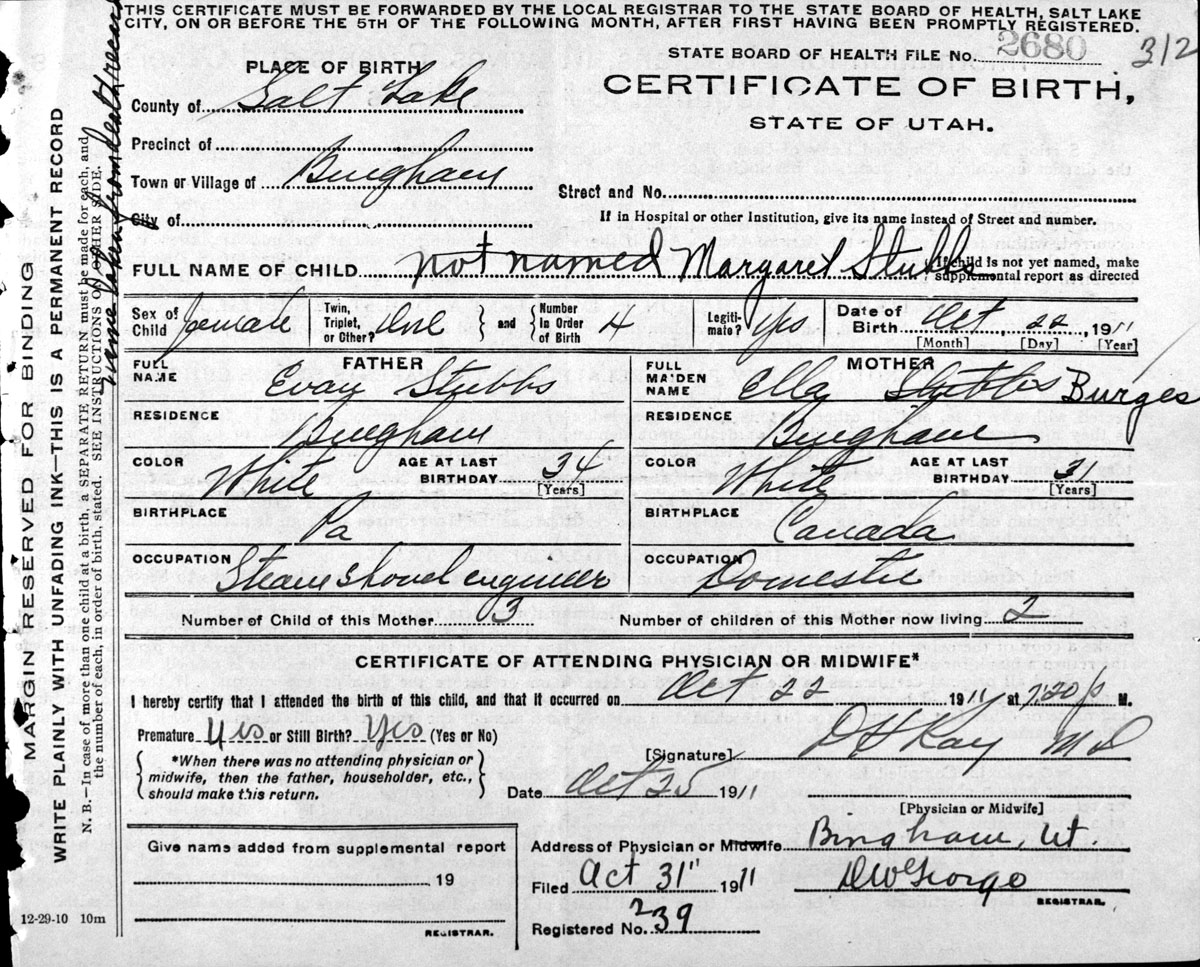 THIS CERTIFICATE MUST BE FORWARDED BY THE LOCAL REGISTRAR TO THE STATE BOARD OF HEALTH, SALT LAKE
CITY, ON OR BEFORE THE 5TH OF THE FOLLOWING MONTH, AFTER FIRST HAVING BEEN PROMPTLY REGISTERED.
STATE BOARD OF HEALTH FILE No. 2680 312
PLACE OF BIRTH
CERTIFICATE OF BIRTH,
County of Salt Lake
STATE OF UTAH.
Precinct of
Town or Village of Bingham
Street and No.
City of
If in Hospital or other Institution, give its name instead of Street and number.
FULL NAME OF CHILD not named Margaret Stubbs If child is not yet named, make
supplemental report as directed
Sex of Child female Twin, Triplet, or Other? One and Number in Order of Birth 4 Legitimate? Yes Date of Birth Oct, 22, 1911
[Month] [Day] [Year]
FATHER MOTHER
FULL NAME Evan Stubbs FULL MAIDEN NAME Ella Stubbs Burges
RESIDENCE Bingham RESIDENCE Bingham
COLOR White AGE AT LAST BIRTHDAY 34 [Years] COLOR White AGE AT LAST BIRTHDAY 31 [Years]
BIRTHPLACE Pa BIRTHPLACE Canada
OCCUPATION Steam Shovel engineer OCCUPATION Domestic
Number of Child of this Mother 3 Number of children of this Mother now living 2
CERTIFICATE OF ATTENDING PHYSICIAN OR MIDWIFE*
I hereby certify that I attended the birth of this child, and that it occurred on Oct 22 1911 at 7,20 P M.
Premature Yes or Still Birth? Yes (Yes or No)
[Signature] D H Kay MD
*When there was no attending physician or
midwife, then the father, householder, etc.,
should make this return.
Date Oct 25 1911
[Physician or Midwife]
Give name added from supplemental report
19
REGISTRAR.
Address of Physician or Midwife Bingham, Ut.
Filed Oct 31" 1911 D W George
REGISTRAR.
Registered No. 239
12-29-10 10m
MARGIN RESERVED FOR BINDING
WRITE PLAINLY WITH UNFADING INK—THIS IS A PERMANENT RECORD
N. B.—In case of more than one child at a birth, a SEPARATE RETURN must be made for each, and
the number of each, in order of birth, stated. SEE INSTRUCTIONS ON OTHER SIDE.
name taken from death record